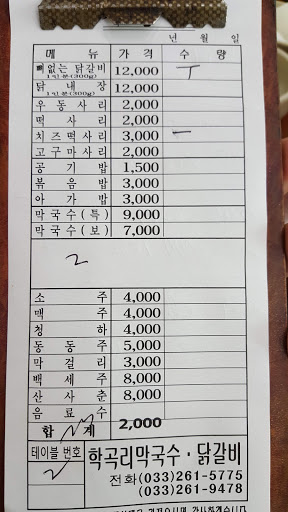 년 월 일
메 뉴 가 격 수 량
뼈없는 닭갈비 1인분(300g) 12,000 T
닭 내 장 1인분(300g) 12,000
우 동 사 리 2,000
떡 사 리 2,000
치즈떡사리 3,000 一
고구마사리 2,000
공 기 밥 1,500
볶 음 밥 3,000
아 가 밥 3,000
막국수(특) 9,000
막국수(보) 7,000
2
소 주 4,000
맥 주 4,000
청 하 4,000
동 동 주 5,000
막 걸 리 3,000
백 세 주 8,000
산 사 춘 8,000
음 료 수 2,000
합 계
테이블 번호
2
학곡리막국수·닭갈비
전화(033)261-5775
(033)261-9478